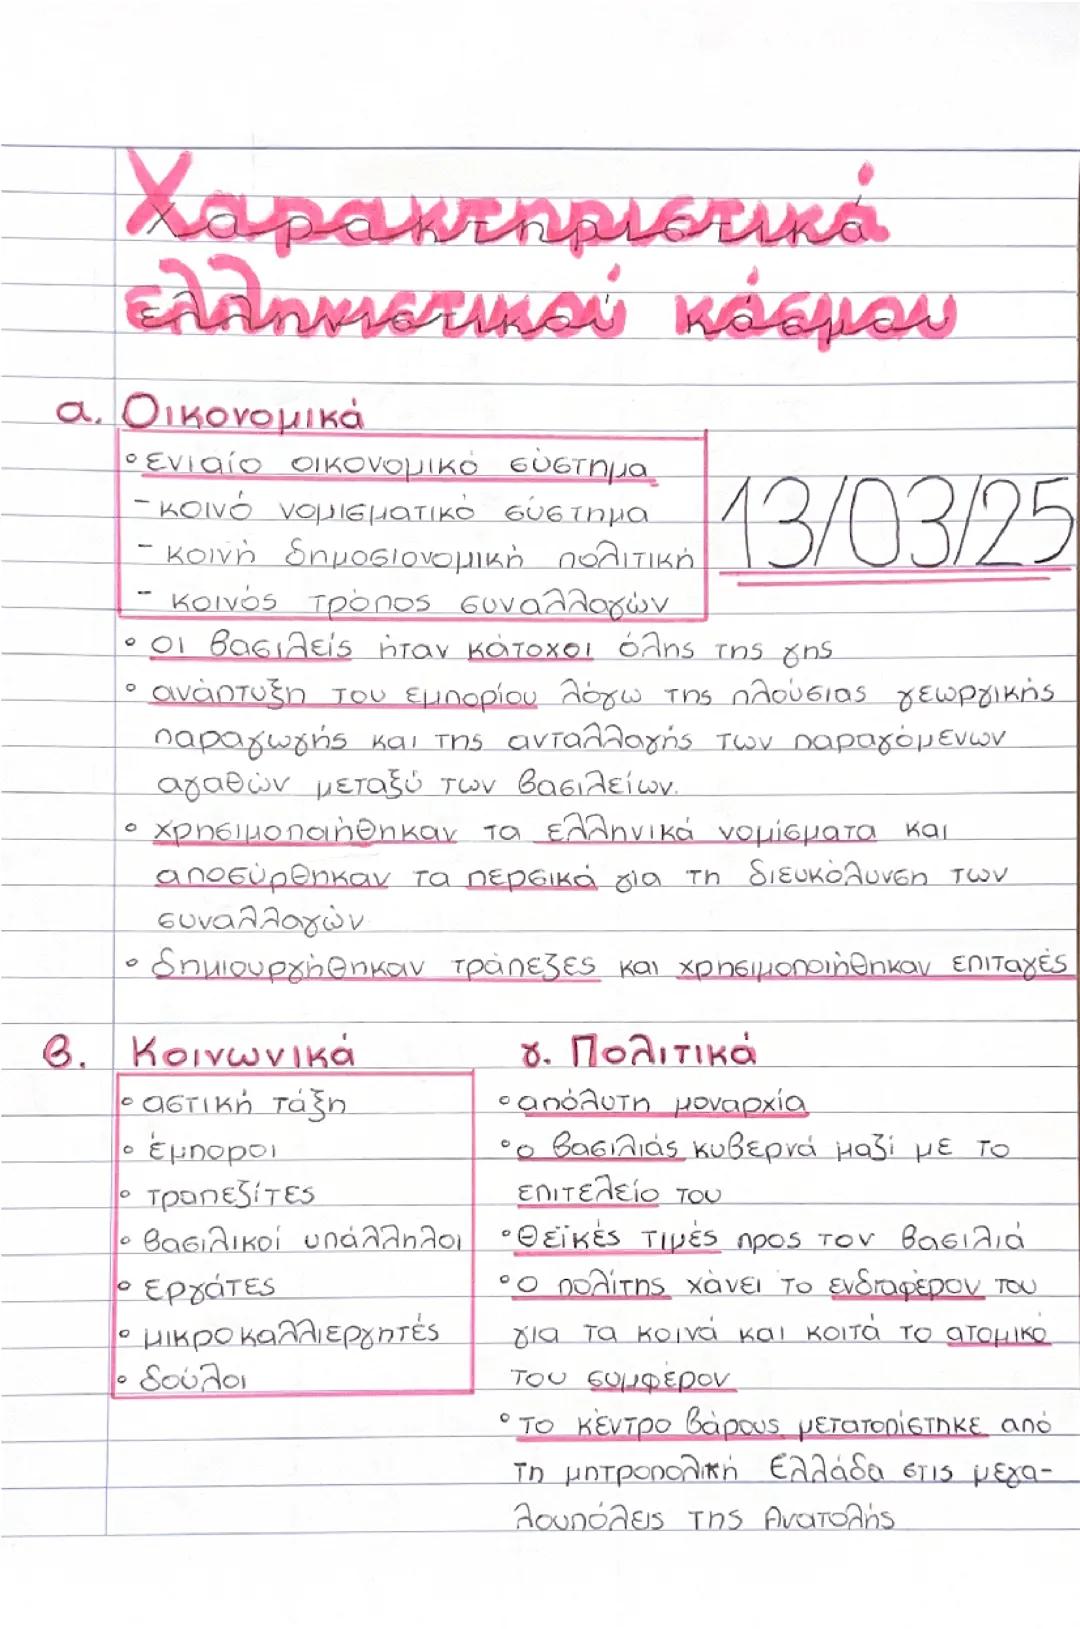 Χαρακτηριστικά
ελληνιστικού κόσμου
α. Οικονομικά
• ενιαίο οικονομικό σύστημα
- κοινό νομισματικό σύστημα
13/03/25
- κοινή δημοσιονομική πολιτική
- κοινός τρόπος συναλλαγών
• οι βασιλείς ήταν κάτοχοι όλης της γης
• ανάπτυξη του εμπορίου λόγω της πλούσιας γεωργικής
παραγωγής και της ανταλλαγής των παραγόμενων
αγαθών μεταξύ των βασιλείων.
• χρησιμοποιήθηκαν τα ελληνικά νομίσματα και
αποσύρθηκαν τα περσικά για τη διευκόλυνση των
συναλλαγών
• δημιουργήθηκαν τράπεζες και χρησιμοποιήθηκαν επιταγές
β. Κοινωνικά
• αστική τάξη
• έμποροι
• τραπεζίτες
• βασιλικοί υπάλληλοι
• εργάτες
• μικροκαλλιεργητές
• δούλοι
γ. Πολιτικά
• απόλυτη μοναρχία
• ο βασιλιάς κυβερνά μαζί με το
επιτελείο του
• θεϊκές τιμές προς τον βασιλιά
• ο πολίτης χάνει το ενδιαφέρον του
για τα κοινά και κοιτά το ατομικό
του συμφέρον
• το κέντρο βάρους μετατοπίστηκε από
τη μητροπολική Ελλάδα στις μεγα-
λουπόλεις της Ανατολής